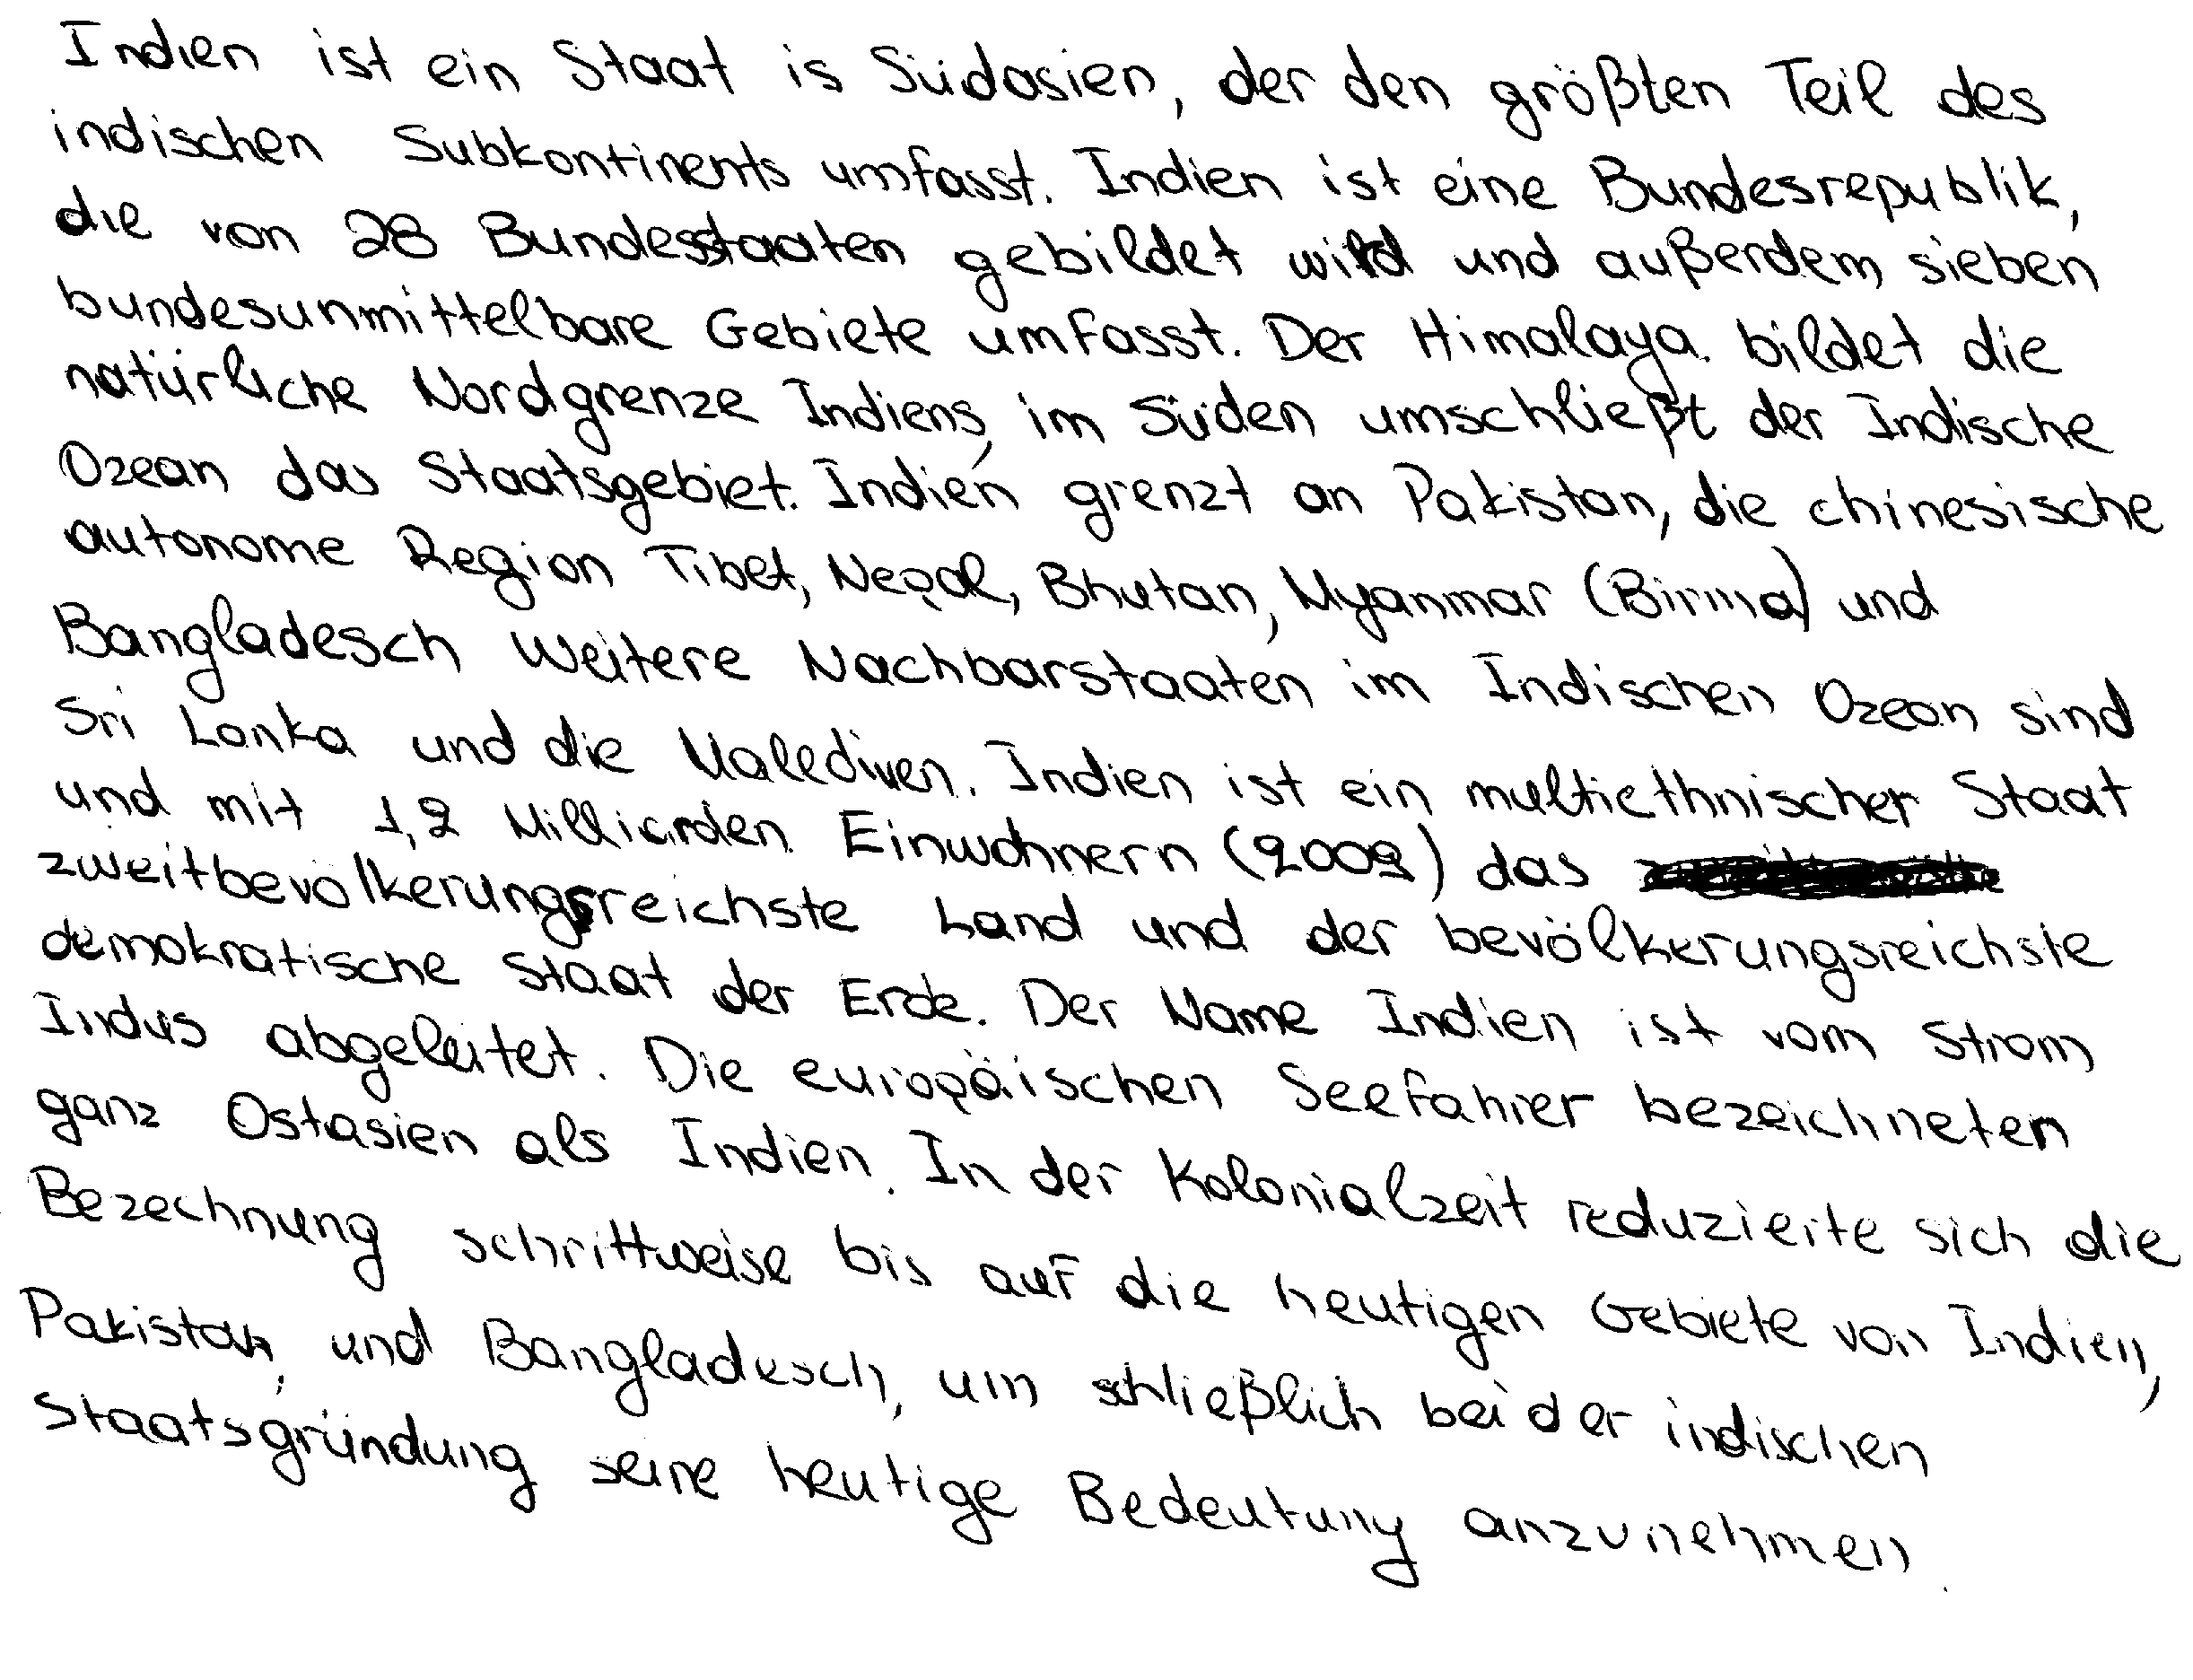 Indien ist ein Staat is Südasien, der den größten Teil des
indischen Subkontinents umfasst. Indien ist eine Bundesrepublik,
die von 28 Bundesstaaten gebildet wird und außerdem sieben
bundesunmittelbare Gebiete umfasst. Der Himalaya bildet die
natürliche Nordgrenze Indiens, im Süden umschließt der Indische
Ozean das Staatsgebiet. Indien grenzt an Pakistan, die chinesische
autonome Region Tibet, Nepal, Bhutan, Myanmar (Birma) und
Bangladesch Weitere Nachbarstaaten im Indischen Ozean sind
Sri Lanka und die Malediven. Indien ist ein multiethnischer Staat
und mit 1,2 Milliarden Einwohnern (2009) das
zweitbevölkerungsreichste Land und der bevölkerungsreichste
demokratische Staat der Erde. Der Name Indien ist vom Strom
Indus abgeleitet. Die europäischen Seefahrer bezeichneten
ganz Ostasien als Indien. In der Kolonialzeit reduzierte sich die
Bezechnung schrittweise bis auf die heutigen Gebiete von Indien,
Pakistan, und Bangladesch, um schließlich bei der indischen
Staatsgründung seine heutige Bedeutung anzunehmen.